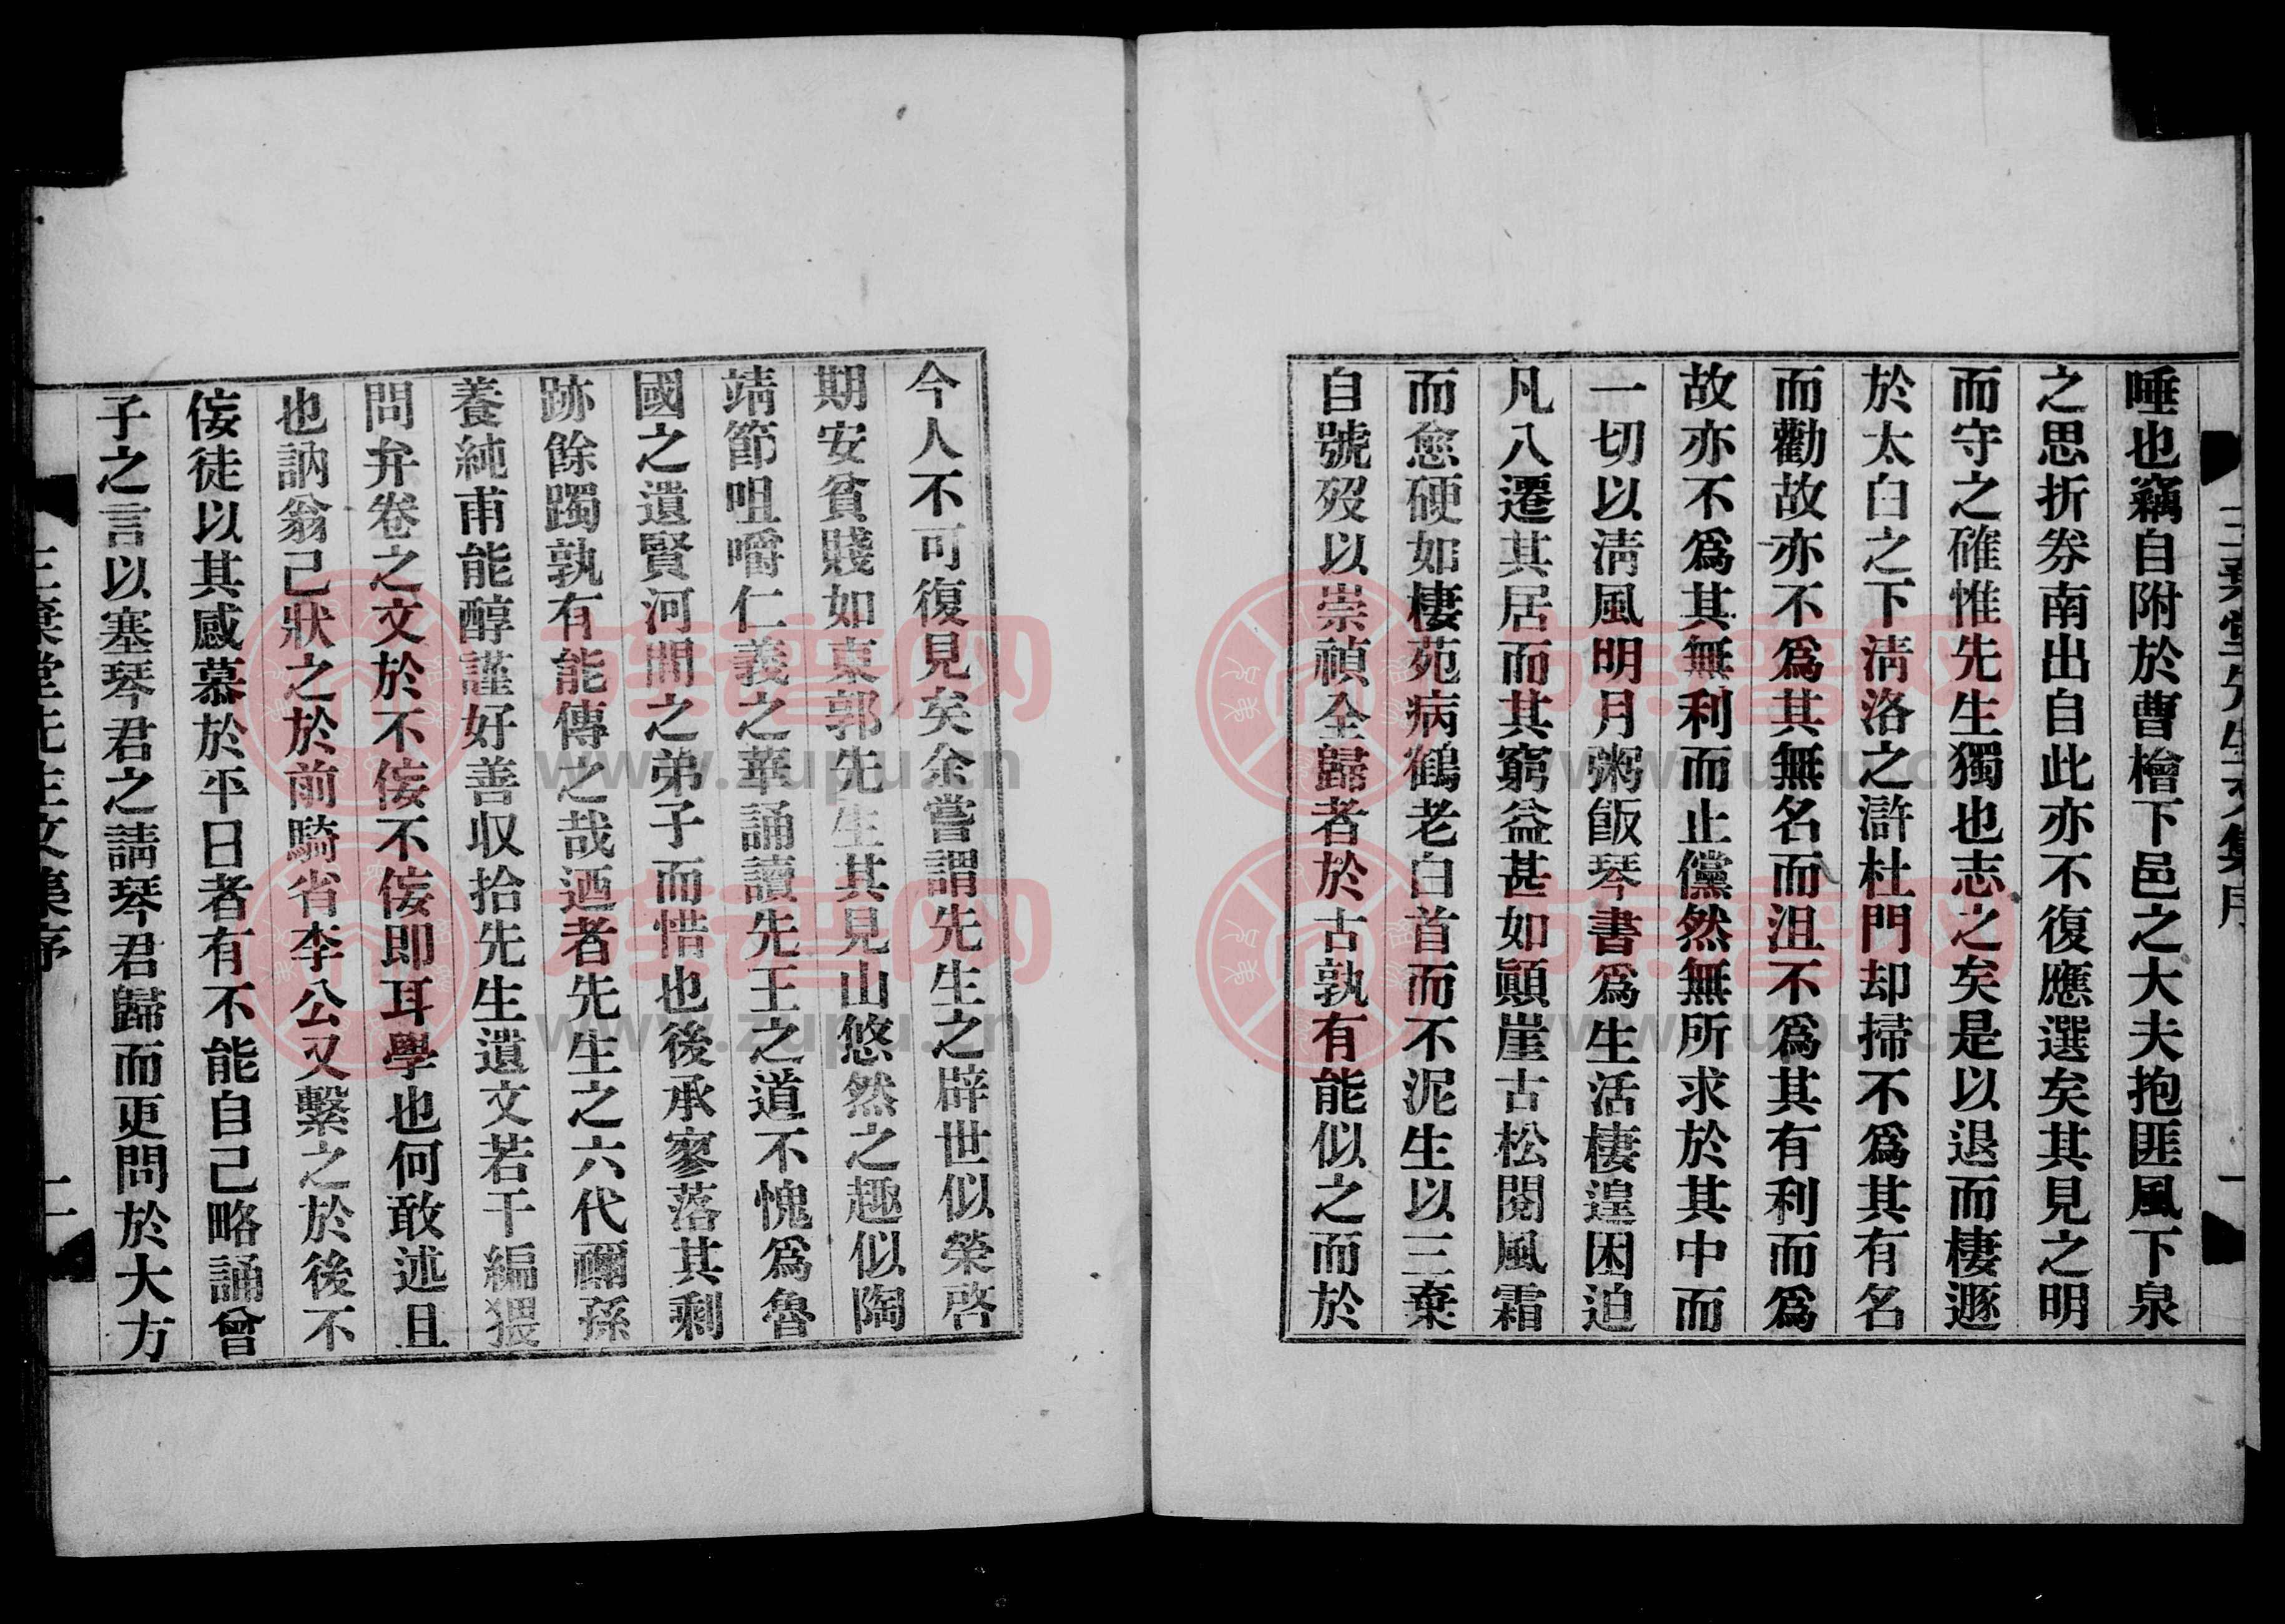 三棄堂先生文集序
一
唾也竊自附於曹檜下邑之大夫抱匪風下泉
之思折券南出自此亦不復應選矣其見之明
而守之確惟先生獨也志之矣是以退而棲遯
於太白之下淸洛之滸杜門却掃不爲其有名
而勸故亦不爲其無名而沮不爲其有利而爲
故亦不爲其無利而止儻然無所求於其中而
一切以淸風明月粥飯琴書爲生活棲遑困迫
凡八遷其居而其窮益甚如顚崖古松閱風霜
而愈硬如棲苑病鶴老白首而不泥生以三棄
自號歿以崇禎全歸者於古孰有能似之而於
今人不可復見矣余嘗謂先生之辟世似榮啓
期安貧賤如東郭先生其見山悠然之趣似陶
靖節咀嚼仁義之華誦讀先王之道不愧爲魯
國之遺賢河間之弟子而惜也後承寥落其剩
跡餘躅孰有能傳之哉迺者先生之六代禰孫
養純甫能醇謹好善収拾先生遺文若干編猥
問弁卷之文於不侫不侫即耳學也何敢述且
也訥翁己狀之於前騎省李公又繫之於後不
侫徒以其感慕於平日者有不能自己略誦曾
子之言以塞琴君之請琴君歸而更問於大方
三棄堂先生文集序
二
族譜网
www.zupu.cn
族譜网
www.zupu.cn
族譜网
www.zupu.cn
族譜网
www.zupu.cn